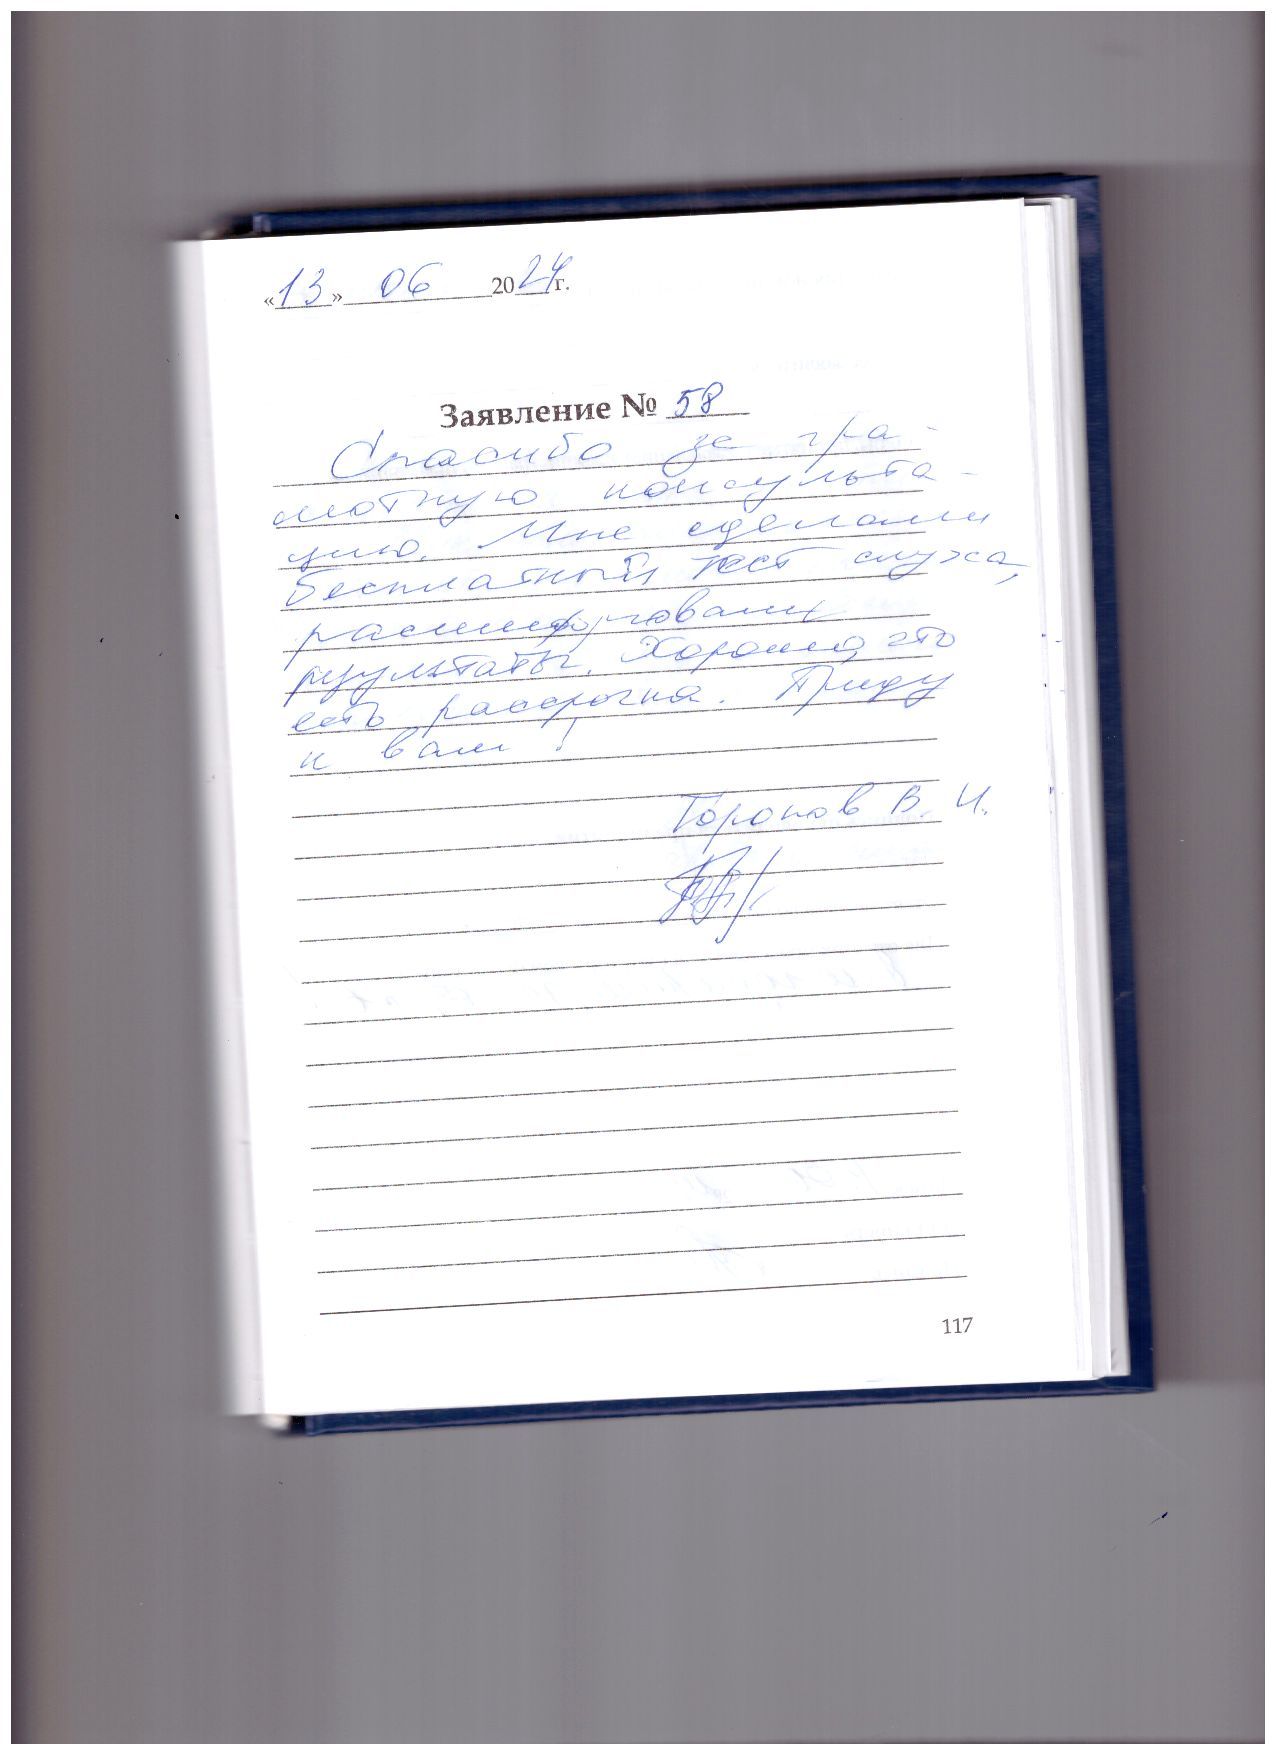 «13» 06 2024 г.
Заявление № 58
Спасибо за гра-
мотную консульта-
цию. Мне сделали
бесплатный тест слуха,
расшифровали
результаты. Хорошо, что
есть рассрочка. Приду
к вам!
Торопов В. И.
117